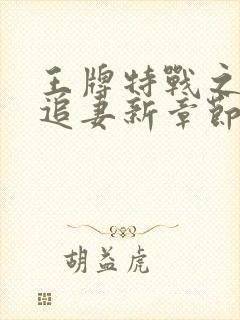 王牌特戰之
追妻新章節
胡益虎